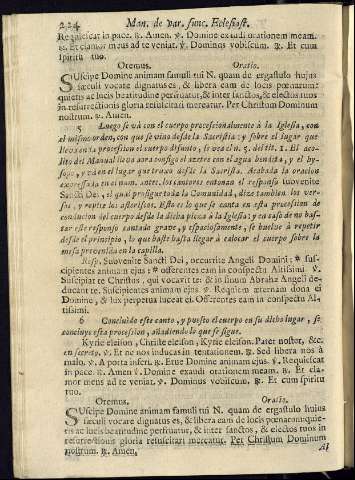 224 Man. de var. func. Eclesiast.
Requiescat in pace. ℟. Amen. ℣. Domine exaudi orationem meam.
℟. Et clamor meus ad te veniat. ℣. Dominus vobiscum. ℟. Et cum
spiritu tuo.
Oremus. Oratio.
SUscipe Domine animam famuli tui N. quam de ergastulo hujus
sæculi vocare dignatus es, & libera eam de locis pœnarum:
quietis ac lucis beatitudine perfruatur, & inter sanctos, & electos tuos
in resurrectionis gloria resuscitari mereatur. Per Christum Dominum
nostrum. ℟. Amen.
5 Luego se và con el cuerpo procesionalmente à la Iglesia, con
el mismo orden, con que se vino desde la Sacristia: y sobre el lugar que
lleva en la procesion el cuerpo difunto, se vea el n. 5. del tit. 1. El aco-
lito del Manual lleva aora consigo el acetre con el agua bendita, y el hy-
sopo, y và en el lugar que traxo desde la Sacristia. Acabada la oracion
expresada en el num. antec. los cantores entonan el responso subvenite
Sancti Dei, el qual prosigue toda la Comunidad, dize tambien los ver-
sos, y repite los asteriscos. Esto es lo que se canta en esta procesion de
conducion del cuerpo desde la dicha pieza à la Iglesia: y en caso de no bas-
tar este responso cantado grave, y espaciosamente, se buelve à repetir
desde el principio, lo que baste hasta llegar à colocar el cuerpo sobre la
mesa prevenida en la capilla.
Resp. Subvenite Sancti Dei, occurrite Angeli Domini: * sus-
cipientes animam ejus: * offerentes eam in conspectu Altissimi ℣.
Suscipiat te Christus, qui vocavit te: & in sinum Abrahæ Angeli de-
ducant te. Suscipientes animam ejus ℣. Requiem æternam dona ei
Domine, & lux perpetua luceat ei. Offerentes eam in conspectu Al-
tissimi.
6 Concluido este canto, y puesto el cuerpo en su dicho lugar, se
concluye esta procesion, añadiendo lo que se sigue.
Kyrie eleison, Christe eleison, Kyrie eleison. Pater noster, &c.
en secreto. ℣. Et ne nos inducas in tentationem. ℟. Sed libera nos à
malo. ℣. A porta inferi. ℟. Erue Domine animam ejus. ℣. Requiescat
in pace. ℟. Amen ℣. Domine exaudi orationem meam. ℟. Et cla-
mor meus ad te veniat. ℣. Dominus vobiscum. ℟. Et cum spiritu
tuo.
Oremus. Oratio.
SUscipe Domine animam famuli tui N. quam de ergastulo huius
sæculi vocare dignatus es, & libera eam de locis pœnarum: qui-
etis ac lucis beatitudine perfruatur, & inter sanctos, & electos tuos in
resurrectionis gloria resuscitari mereatur. Per Christum Dominum
nostrum. ℟. Amen.
Al